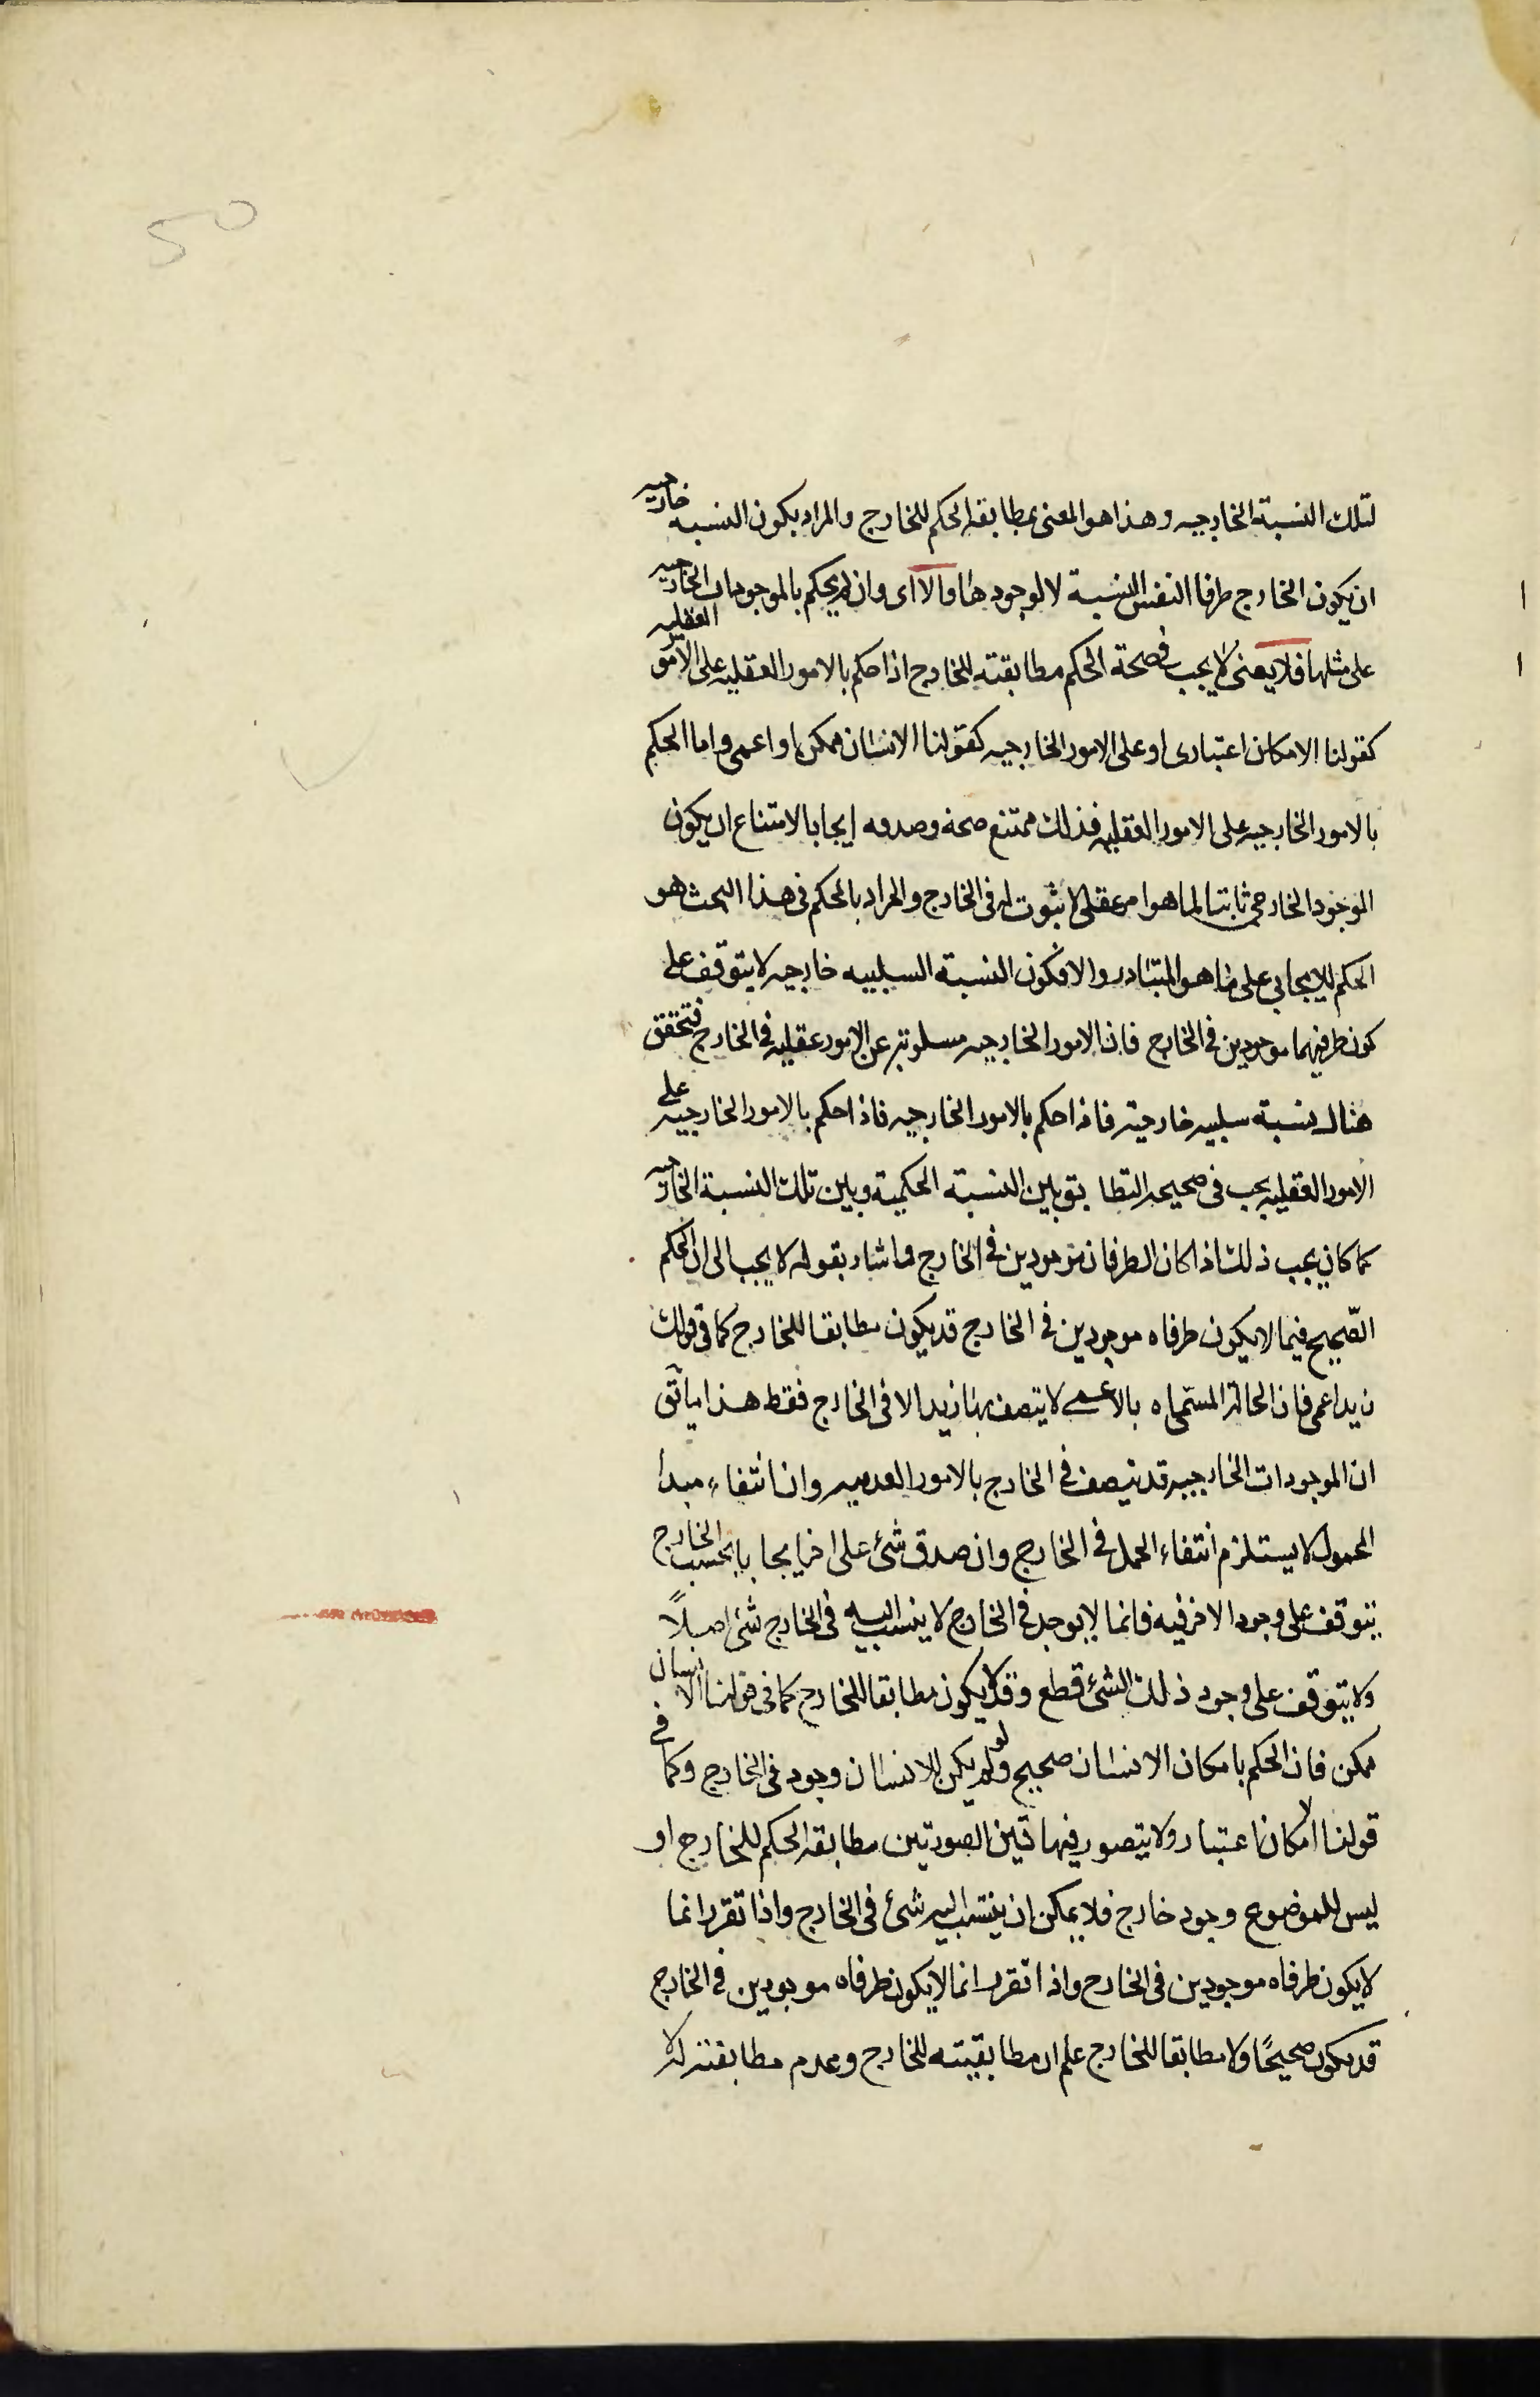 50
لتلك النسبة الخارجيه وهذا هو المعنى بمطابقه الحكم للخارج والمراد بكون النسبه خارجيه
ان يكون الخارج ظرفا لنفس النسبة لا لوجودها والا اى وان لم يحكم بالموجودات الخارجيه
على مثلها فلا يعنى لا يجب فى صحة الحكم مطابقته للخارج اذا حكم بالامور العقليه على الامور العقليه
كقولنا الامكان اعتبارى او على الامور الخارجيه كقولنا الانسان ممكن او اعمى واما الحكم
بالامور الخارجيه على الامور العقليه فذلك ممتنع صحة وصدقه ايجابا لامتناع ان يكون
الموجود الخارجى ثابتا لما هو امر عقلى لا ثبوت له فى الخارج والمراد بالحكم فى هذا البحث هو
الحكم للايجابي على ما هو المتبادر والا فكون النسبة السلبيه خارجيه لا يتوقف على
كون طرفيهما موجودين فى الخارج فان الامور الخارجيه مسلوبة عن الامور عقليه فى الخارج فتحقق
هناك نسبة سلبيه خارجية فاذا حكم بالامور الخارجيه فاذا حكم بالامور الخارجيه على
الامور العقليه يجب فى صحيحه التطابق بين النسبة الحكمية وبين تلك النسبة الخارجيه
كما كان يجب ذلك اذا كان الطرفان موجودين فى الخارج واشار بقوله لا يجب الى ان الحكم
الصّحيح فيما لا يكون طرفاه موجودين فى الخارج قد يكون مطابقا للخارج كما فى قولك
زيد اعمى فان الحالة المسمّاه بالاعمى لا يتصف بها زيد الا فى الخارج فقط هذا يأتى
ان الموجودات الخارجيه قد يتصف فى الخارج بالامور العدميه وان انتفاء مبدأ
المحمول لا يستلزم انتفاء الحمل فى الخارج وان صدق شئ على اخر ايجابا بحسب الخارج
يتوقف على وجود الاخر فيه فانما لا يوجد فى الخارج لا ينسب اليه فى الخارج شئ اصلاً
ولا يتوقف على وجود ذلك الشئ قطع وقد لا يكون مطابقا للخارج كما فى قولنا الانسان
ممكن فان الحكم بامكان الانسان صحيح ولو لم يكن للانسان وجود فى الخارج وكما فى
قولنا الامكان اعتبار ولا يتصور فيها تين الصورتين مطابقه الحكم للخارج او
ليس للموضوع وجود خارج فلا يمكن ان ينتسب اليه شئ فى الخارج واذا تقرر انما
لا يكون طرفاه موجودين فى الخارج واذا تقرر انما لا يكون طرفاه موجودين فى الخارج
قد يكون صحيحًا ولا مطابقا للخارج علم ان مطابقيته للخارج وعدم مطابقته له لا